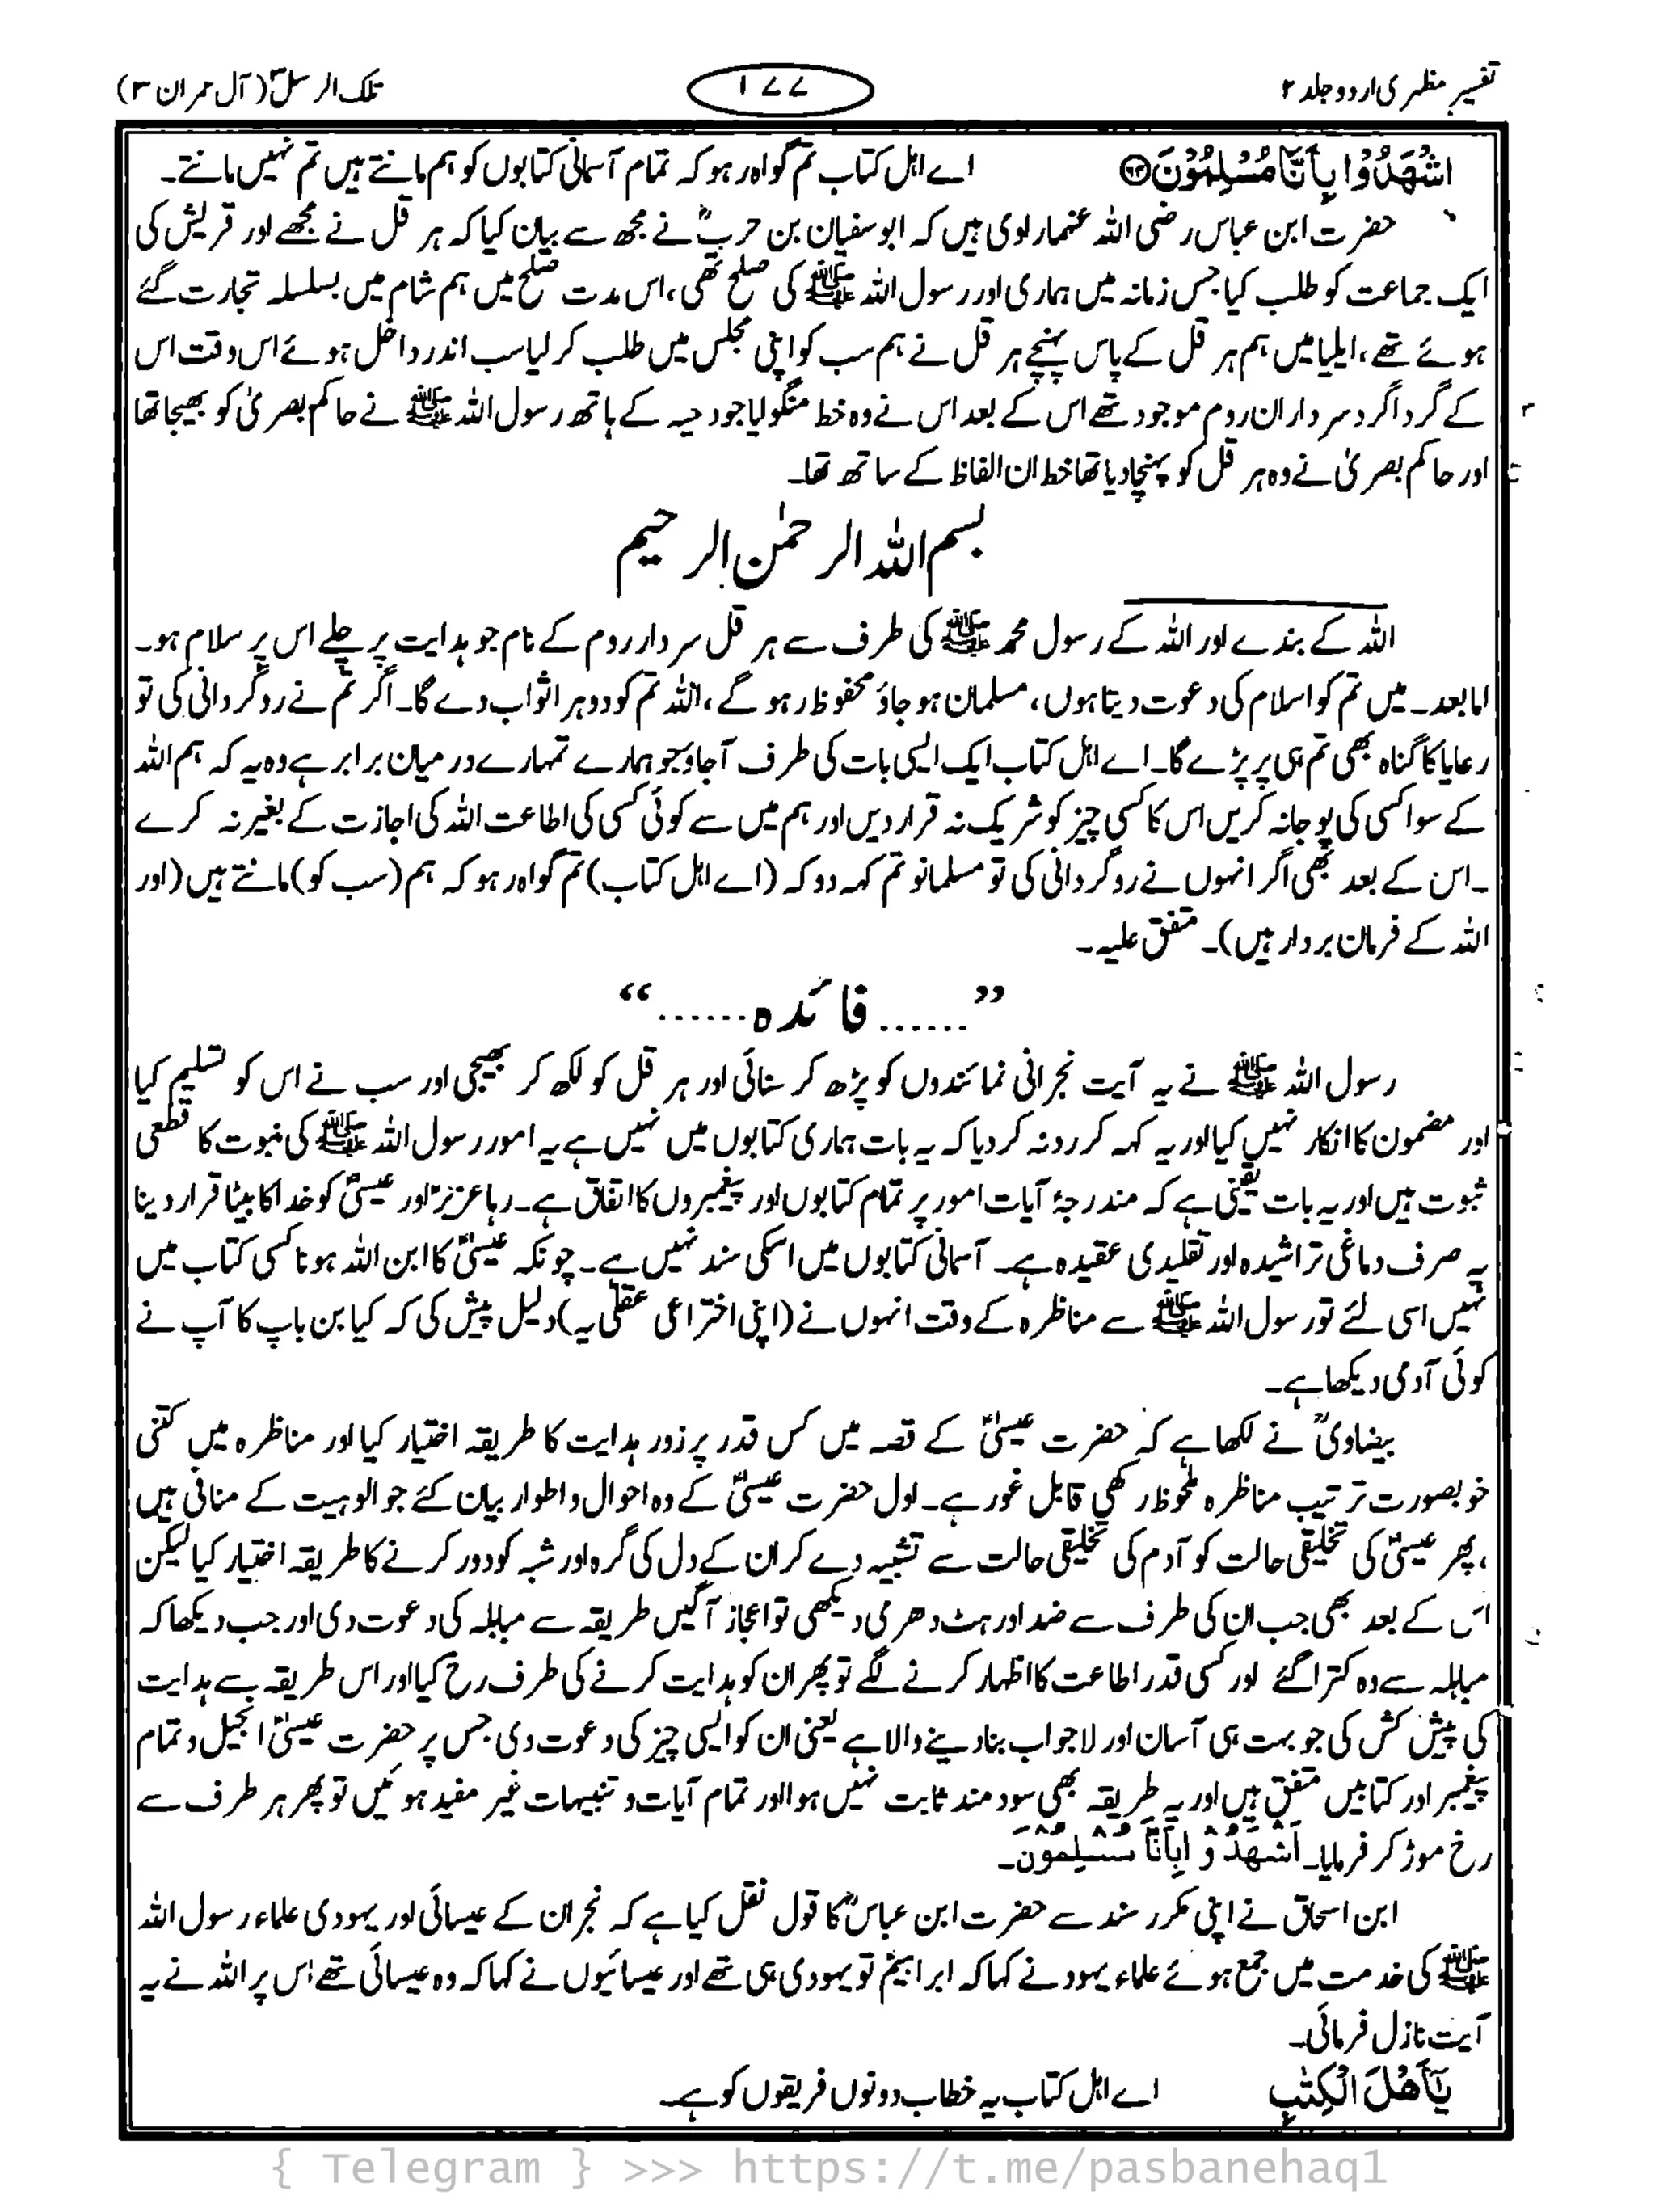 تفسیر مظہری اردو جلد ۲
۲۷۷
تلک الرسل (آل عمران ۳)
اشْهَدُوْا بِاَنَّا مُسْلِمُوْنَ ۶۴ اے اہل کتاب تم گواہ رہو کہ تمام آسمانی کتابوں کو ہم مانتے ہیں تم نہیں مانتے۔
حضرت ابن عباس رضی اللہ عنہما راوی ہیں کہ ابوسفیان بن حربؓ نے مجھ سے بیان کیا کہ ہر قل نے مجھے اور قریش کی
ایک جماعت کو طلب کیا جس زمانہ میں ہماری اور رسول اللہ ﷺ کی صلح تھی، اس مدت صلح میں ہم شام میں بسلسلہ تجارت گئے
ہوئے تھے، ایلیا میں ہم ہر قل کے پاس پہنچے ہر قل نے ہم سب کو اپنی مجلس میں طلب کر لیا سب اندر داخل ہوئے اس وقت اس
کے گردا گرد سرداران روم موجود تھے اس کے بعد اس نے وہ خط منگولیا جو دحیہ کے ہاتھ رسول اللہ ﷺ نے حاکم بصریٰ کو بھیجا تھا
اور حاکم بصریٰ نے وہ ہر قل کو پہنچا دیا تھا خط ان الفاظ کے ساتھ تھا۔
بسم اللہ الرحمٰن الرحیم
اللہ کے بندے اور اللہ کے رسول محمد ﷺ کی طرف سے ہر قل سردار روم کے نام جو ہدایت پر چلے اس پر سلام ہو۔
اما بعد۔ میں تم کو اسلام کی دعوت دیتا ہوں، مسلمان ہو جاؤ محفوظ رہو گے، اللہ تم کو دوہرا ثواب دے گا۔ اگر تم نے روگردانی کی تو
رعایا کا گناہ بھی تم ہی پر پڑے گا۔ اے اہل کتاب ایک ایسی بات کی طرف آجاؤ جو ہمارے تمہارے درمیان برابر ہے وہ یہ کہ ہم اللہ
کے سوا کسی کی پوجا نہ کریں اس کا کسی چیز کو شریک نہ قرار دیں اور ہم میں سے کوئی کسی کی اطاعت اللہ کی اجازت کے بغیر نہ کرے
۔ اس کے بعد بھی اگر انہوں نے روگردانی کی تو مسلمانو تم کہہ دو کہ (اے اہل کتاب) تم گواہ رہو کہ ہم (سب کو) مانتے ہیں (اور
اللہ کے فرمان بردار ہیں)۔ متفق علیہ۔
”......فائدہ......“
رسول اللہ ﷺ نے یہ آیت نجرانی نمائندوں کو پڑھ کر سنائی اور ہر قل کو لکھ کر بھیجی اور سب نے اس کو تسلیم کیا
اور مضمون کا انکار نہیں کیا اور یہ کہہ کر رد نہ کر دیا کہ یہ بات ہماری کتابوں میں نہیں ہے یہ امور رسول اللہ ﷺ کی نبوت کا قطعی
ثبوت ہیں اور یہ بات یقینی ہے کہ مندرجۂ آیات امور پر تمام کتابوں اور پیغمبروں کا اتفاق ہے۔ رہا عزیرؑ اور عیسیٰؑ کو خدا کا بیٹا قرار دینا
یہ صرف دماغی تراشیدہ اور تقلیدی عقیدہ ہے۔ آسمانی کتابوں میں اسکی سند نہیں ہے۔ چونکہ عیسیٰؑ کا ابن اللہ ہونا کسی کتاب میں
نہیں اسی لئے تو رسول اللہ ﷺ سے مناظرہ کے وقت انہوں نے (اپنی اختراعی عقلی یہ) دلیل پیش کی کہ کیا بن باپ کا آپ نے
کوئی آدمی دیکھا ہے۔
بیضاویؒ نے لکھا ہے کہ حضرت عیسیٰؑ کے قصہ میں کس قدر پرزور ہدایت کا طریقہ اختیار کیا اور مناظرہ میں کتنی
خوبصورت ترتیب مناظرہ ملحوظ رکھی قابل غور ہے۔ اول حضرت عیسیٰؑ کے وہ احوال و اطوار بیان کئے جو الوہیت کے منافی ہیں
، پھر عیسیٰؑ کی تخلیقی حالت کو آدم کی تخلیقی حالت سے تشبیہ دے کر ان کے دل کی گرہ اور شبہ کو دور کرنے کا طریقہ اختیار کیا لیکن
اس کے بعد بھی جب ان کی طرف سے ضد اور ہٹ دھرمی دیکھی تو اعجاز آگیں طریقہ سے مباہلہ کی دعوت دی اور جب دیکھا کہ
مباہلہ سے وہ کترا گئے اور کسی قدر اطاعت کا اظہار کرنے لگے تو پھر ان کو ہدایت کرنے کی طرف رخ کیا اور اس طریقہ سے ہدایت
کی پیش کش کی جو بہت ہی آسان اور لاجواب بنا دینے والا ہے یعنی ان کو ایسی چیز کی دعوت دی جس پر حضرت عیسیٰؑ انجیل و تمام
پیغمبر اور کتابیں متفق ہیں اور یہ طریقہ بھی سود مند ثابت نہیں ہوا اور تمام آیات و تنبیہات غیر مفید ہوئیں تو پھر ہر طرف سے
رخ موڑ کر فرمایا۔ اَشْهَدُوْ ابِاَنَّا مُسْلِمُوْنَ۔
ابن اسحاق نے اپنی مکرر سند سے حضرت ابن عباسؓ کا قول نقل کیا ہے کہ نجران کے عیسائی اور یہودی علماء رسول اللہ
ﷺ کی خدمت میں جمع ہوئے علماء یہود نے کہا کہ ابراہیمؑ تو یہودی ہی تھے اور عیسائیوں نے کہا کہ وہ عیسائی تھے اس پر اللہ نے یہ
آیت نازل فرمائی۔
يٰۤاَهْلَ الْكِتٰبِ اے اہل کتاب یہ خطاب دونوں فریقوں کو ہے۔
{ Telegram } >>> https://t.me/pasbanehaq1